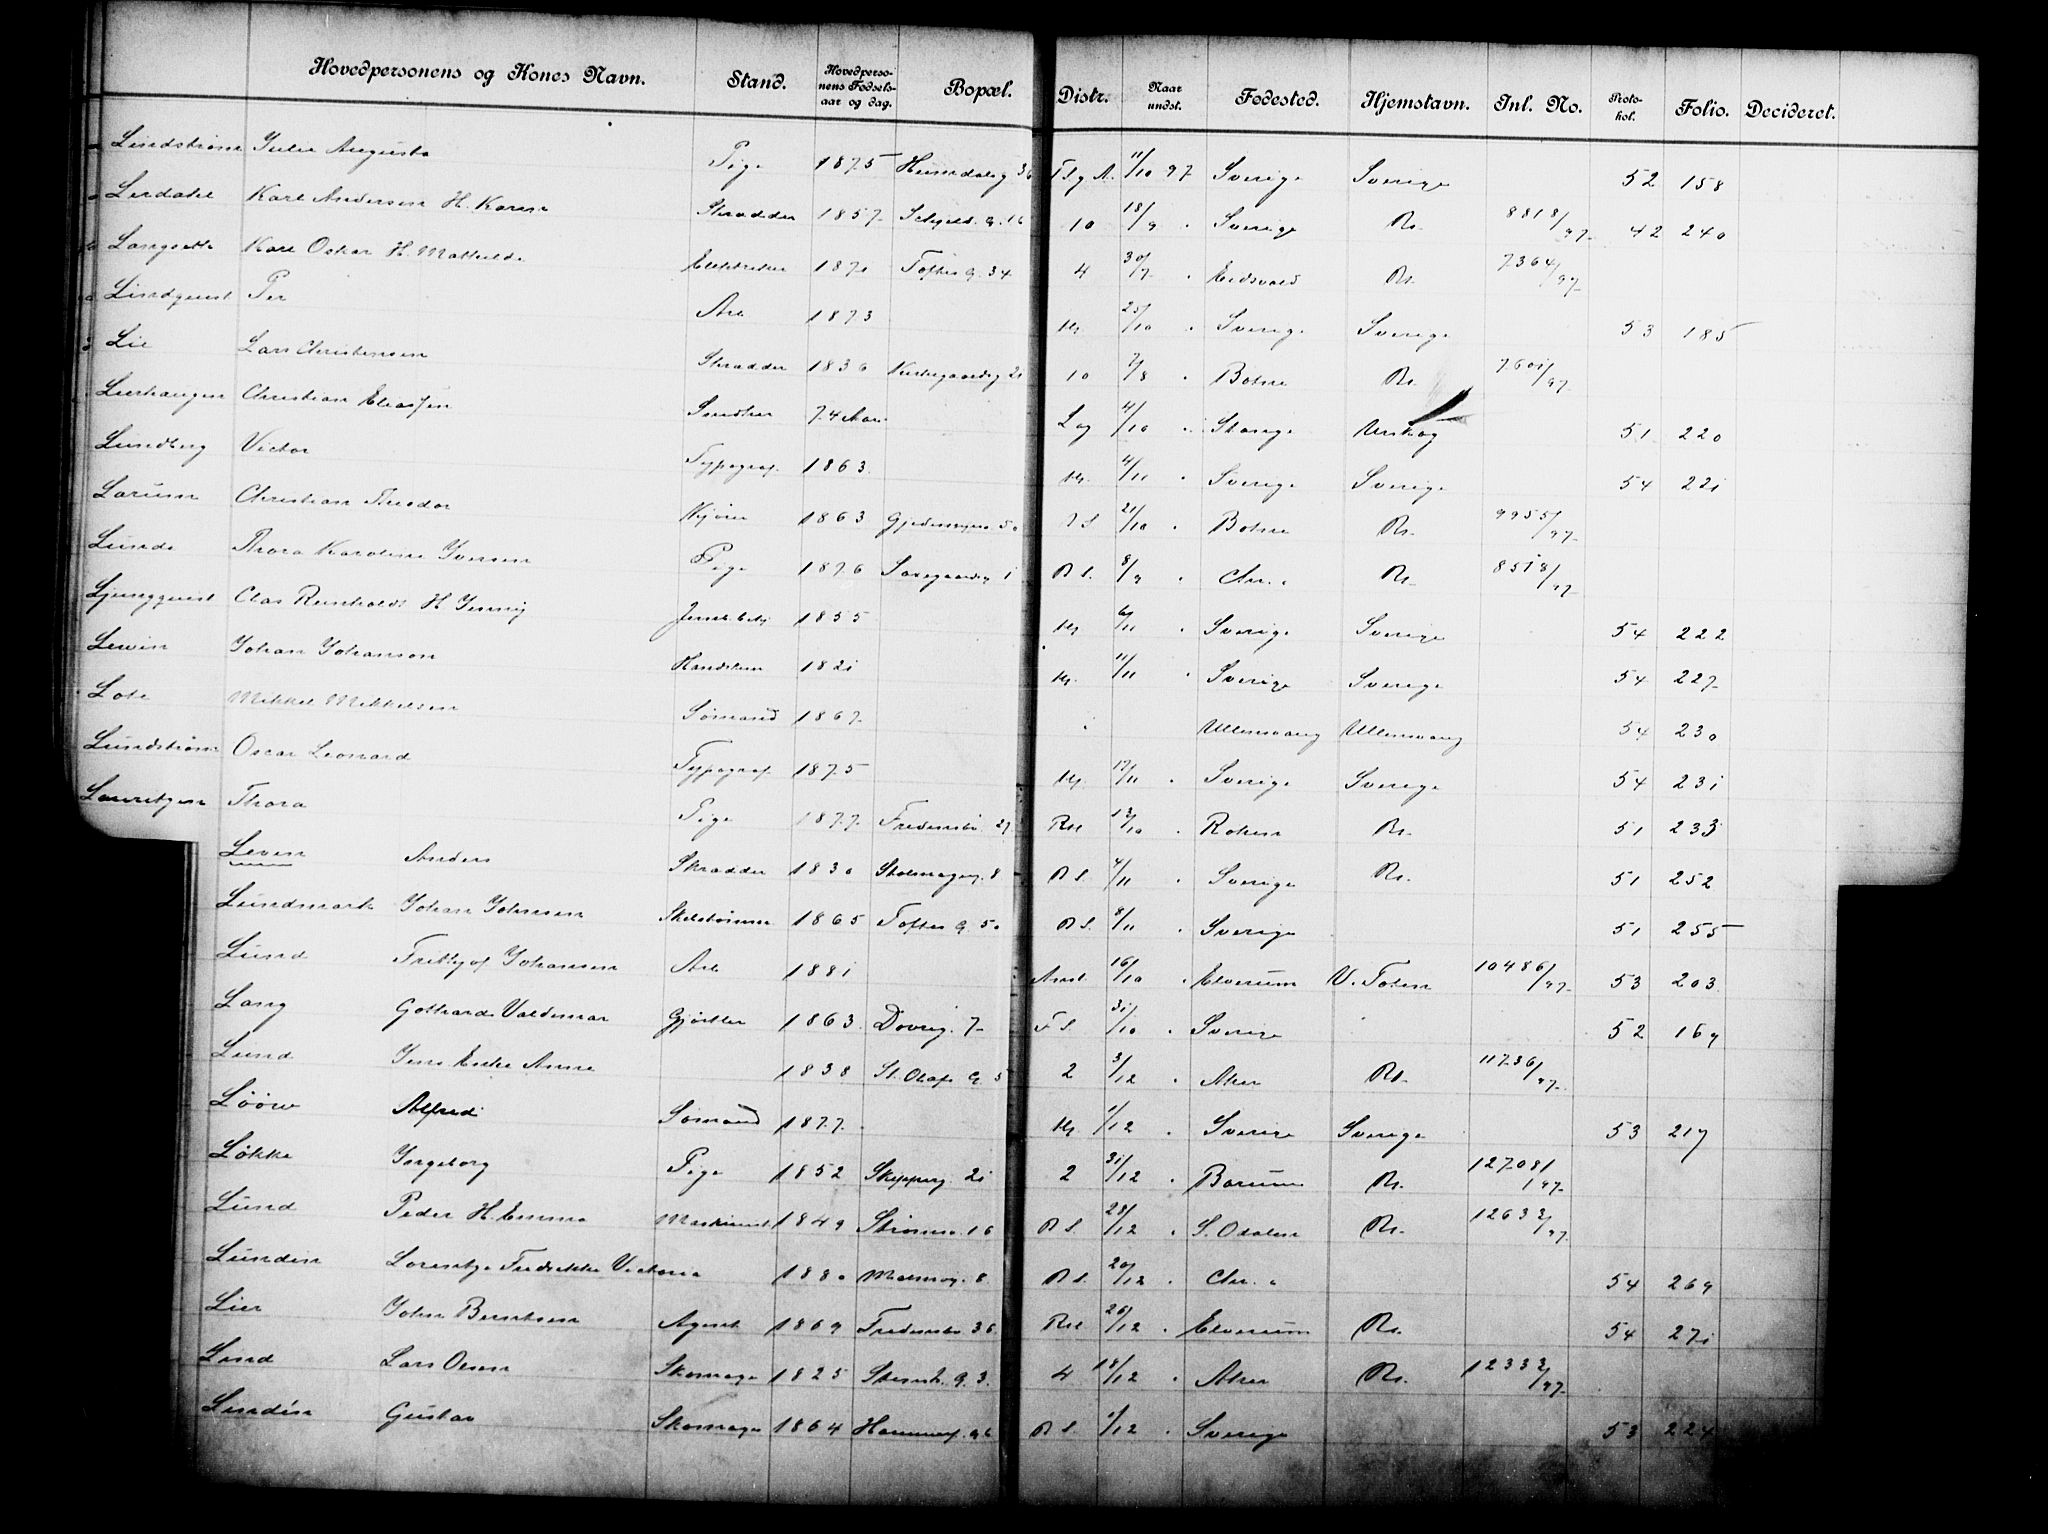 Hovedpersonens og Kones Navn. Stand. Hovedpersonens Fødselsaar og dag. Bopæl. Distr. Naar undst. Fødested. Hjemstavn. Inl. No. Protokol. Folio. Decideret.
Lindstrøm Julie Augusta Pige 1875 Heimdalsg 36 11/10 97 Sverige Sverige 52 158
Lerdahl Karl Andersen H. Karen Skrædder 1857 16 10 18/9 " Sverige Rr. 8818/97 42 240
Langsette Karl Oskar H. Mathilde Elektriker 1871 Toftes G. 34 4 30/7 " Eidsvold Rr. 7364/97
Lindquist Per Arb 1873 25/10 " Sverige Sverige 53 185
Lie Lars Christensen Skrædder 1836 Kirkegaardsg 21 10 7/8 " Botne Rr. 7601/97
Lierhaugen Christian Eliassen Snedker 74 Aar Lag 4/10 " Stange Urskog 51 220
Lundberg Victor Typograf 1863 4/11 " Sverige Sverige 54 221
Larum Christian Theodor Kjører 1863 50 21/10 " Botne Rr. 9955/97
Lunde Thora Karoline Iversen Pige 1876 1 8/9 " Chr.a Rr. 8518/97
Ljungquist Clas Reinholdt H Jenny 1855 6/11 " Sverige Sverige 54 222
Lewin Johan Johanson 1821 11/11 " Sverige Sverige 54 227
Lote Mikkel Mikkelsen Sømand 1867 " Ullensvang Ullensvang 54 230
Lundstrøm Oscar Leonard Typograf 1875 17/11 " Sverige Sverige 54 231
Lauritzen Thora Pige 1877 Fredensb. 27 12/10 " Rr. 51 233
Leven Anders Skrædder 1830 8 4/11 " Sverige Rr. 51 252
Lundmark Johan Johnsen 1865 Toftes G. 50 8/11 " Sverige 51 255
Lund Frithjof Johansen Arb 1881 16/10 " Elverum V. Toten 10486/97 53 203
Lang Gothard Valdemar Gjørtler 1863 Dovreg. 7 31/10 " Sverige 52 169
Lund Jens Enke Anne 1838 St. Olafs G. 5 2 3/12 " Aker Rr. 11736/97
Lööw Alfred Sømand 1877 1/12 " Sverige Sverige 53 219
Løkke Ingeborg Pige 1852 Skipperg. 21 2 31/12 " Bærum Rr. 12708/97
Lund Peder H. Emma Maskinist 1849 Strømsv. 16 28/12 " S. Odalen Rr. 12633/97
Lundin Lorentze Fredrikke Victoria 1880 Malmøg. 8 20/12 " Chr.a 54 269
Lier John Berntsen Agent 1869 Fredensb. 36 26/12 " Elverum Rr. 54 271
Lind Lars Olsen Skomager 1825 Steenst. G. 3. 4 18/12 " Aker Rr. 12333/97
Lindén Gustav Skomager 1864 1/12 " Sverige 53 224